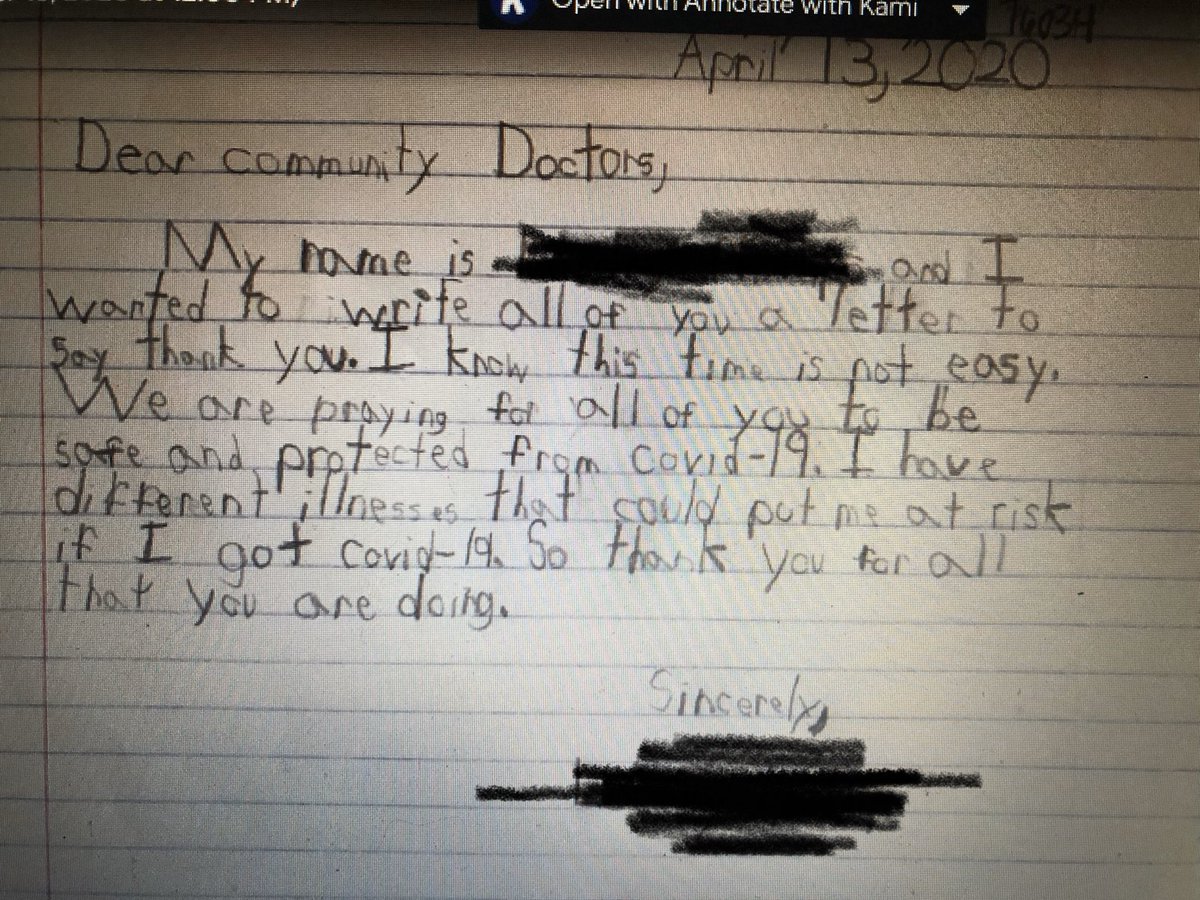 Open with Annotate with Kami
April 13, 2020
Dear community Doctors,
My name is and I
wanted to write all of you a letter to
say thank you. I know this time is not easy.
We are praying for all of you to be
safe and protected from Covid-19. I have
different illnesses that could put me at risk
if I got Covid-19. So thank you for all
that you are doing.
Sincerely,